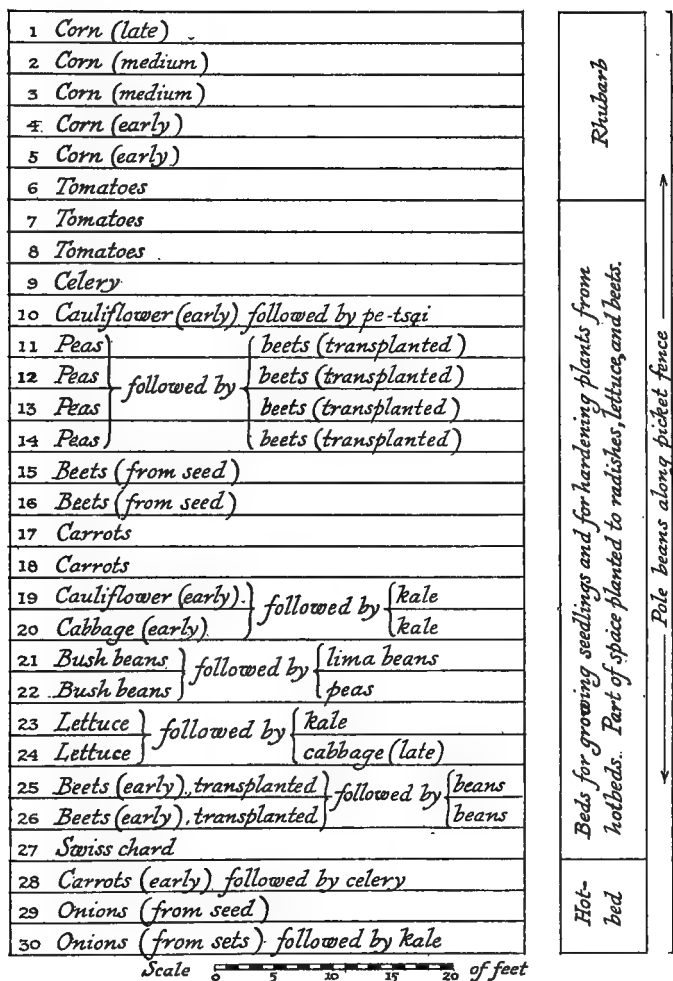 1 Corn (late)
2 Corn (medium)
3 Corn (medium)
4 Corn (early)
5 Corn (early)
6 Tomatoes
7 Tomatoes
8 Tomatoes
9 Celery
10 Cauliflower (early) followed by pe-tsai
11 Peas followed by beets (transplanted)
12 Peas beets (transplanted)
13 Peas beets (transplanted)
14 Peas beets (transplanted)
15 Beets (from seed)
16 Beets (from seed)
17 Carrots
18 Carrots
19 Cauliflower (early) followed by kale
20 Cabbage (early) kale
21 Bush beans followed by lima beans
22 Bush beans peas
23 Lettuce followed by kale
24 Lettuce cabbage (late)
25 Beets (early), transplanted followed by beans
26 Beets (early), transplanted beans
27 Swiss chard
28 Carrots (early) followed by celery
29 Onions (from seed)
30 Onions (from sets) followed by kale
Scale 0 5 10 15 20 of feet
Rhubarb
Beds for growing seedlings and for hardening plants from
hotbeds. Part of space planted to radishes, lettuce, and beets.
Hot-
bed
Pole beans along picket fence